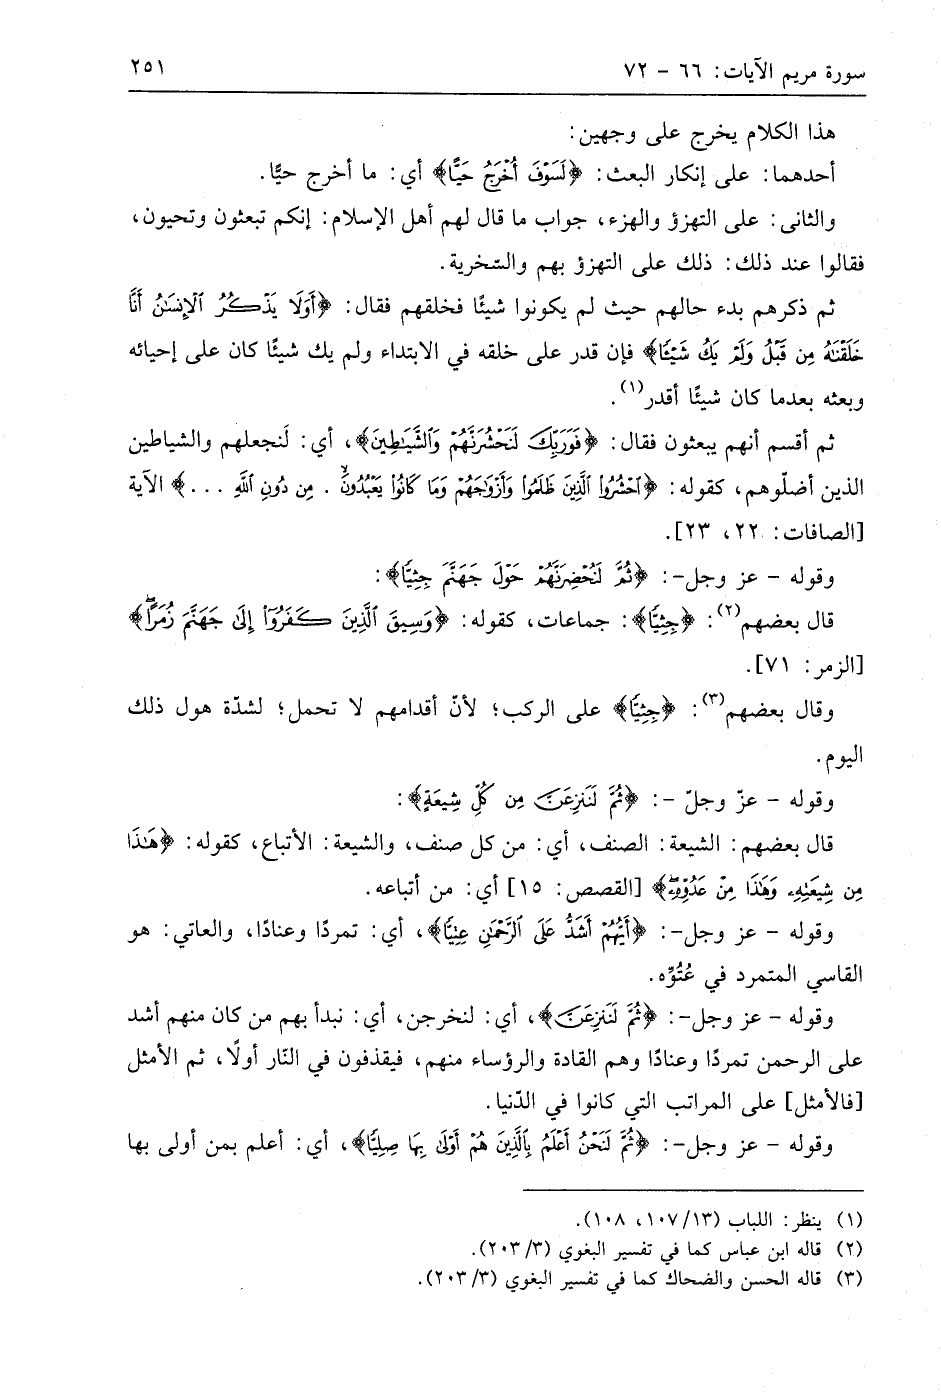 سورة مريم الآيات: ٦٦ - ٧٢
٢٥١
هذا الكلام يخرج على وجهين:
أحدهما: على إنكار البعث: ﴿لَسَوْفَ أُخْرَجُ حَيًّا﴾ أي: ما أخرج حيًّا.
والثانى: على التهزؤ والهزء، جواب ما قال لهم أهل الإسلام: إنكم تبعثون وتحيون،
فقالوا عند ذلك: ذلك على التهزؤ بهم والسّخرية.
ثم ذكرهم بدء حالهم حيث لم يكونوا شيئًا فخلقهم فقال: ﴿أَوَلَا يَذْكُرُ ٱلْإِنسَٰنُ أَنَّا
خَلَقْنَٰهُ مِن قَبْلُ وَلَمْ يَكُ شَيْـًٔا﴾ فإن قدر على خلقه في الابتداء ولم يك شيئًا كان على إحيائه
وبعثه بعدما كان شيئًا أقدر(١).
ثم أقسم أنهم يبعثون فقال: ﴿فَوَرَبِّكَ لَنَحْشُرَنَّهُمْ وَٱلشَّيَٰطِينَ﴾، أي: لَنجعلهم والشياطين
الذين أضلّوهم، كقوله: ﴿ٱحْشُرُوا۟ ٱلَّذِينَ ظَلَمُوا۟ وَأَزْوَٰجَهُمْ وَمَا كَانُوا۟ يَعْبُدُونَۙ . مِن دُونِ ٱللَّهِ ...﴾ الآية
[الصافات: ٢٢، ٢٣].
وقوله - عز وجل-: ﴿ثُمَّ لَنُحْضِرَنَّهُمْ حَوْلَ جَهَنَّمَ جِثِيًّا﴾:
قال بعضهم(٢): ﴿جِثِيًّا﴾: جماعات، كقوله: ﴿وَسِيقَ ٱلَّذِينَ كَفَرُوٓا۟ إِلَىٰ جَهَنَّمَ زُمَرًاۖ﴾
[الزمر: ٧١].
وقال بعضهم(٣): ﴿جِثِيًّا﴾ على الركب؛ لأنّ أقدامهم لا تحمل؛ لشدّة هول ذلك
اليوم.
وقوله - عزّ وجلّ -: ﴿ثُمَّ لَنَنزِعَنَّ مِن كُلِّ شِيعَةٍ﴾:
قال بعضهم: الشيعة: الصنف، أي: من كل صنف، والشيعة: الأتباع، كقوله: ﴿هَٰذَا
مِن شِيعَتِهِۦ وَهَٰذَا مِنْ عَدُوِّهِۦۖ﴾ [القصص: ١٥] أي: من أتباعه.
وقوله - عز وجل-: ﴿أَيُّهُمْ أَشَدُّ عَلَى ٱلرَّحْمَٰنِ عِتِيًّا﴾، أي: تمردًا وعنادًا، والعاتي: هو
القاسي المتمرد في عُتُوِّه.
وقوله - عز وجل-: ﴿ثُمَّ لَنَنزِعَنَّ﴾، أي: لنخرجن، أي: نبدأ بهم من كان منهم أشد
على الرحمن تمردًا وعنادًا وهم القادة والرؤساء منهم، فيقذفون في النّار أولًا، ثم الأمثل
[فالأمثل] على المراتب التي كانوا في الدّنيا.
وقوله - عز وجل-: ﴿ثُمَّ لَنَحْنُ أَعْلَمُ بِٱلَّذِينَ هُمْ أَوْلَىٰ بِهَا صِلِيًّا﴾، أي: أعلم بمن أولى بها
(١) ينظر: اللباب (١٣/ ١٠٧، ١٠٨).
(٢) قاله ابن عباس كما في تفسير البغوي (٣/ ٢٠٣).
(٣) قاله الحسن والضحاك كما في تفسير البغوي (٣/ ٢٠٣).